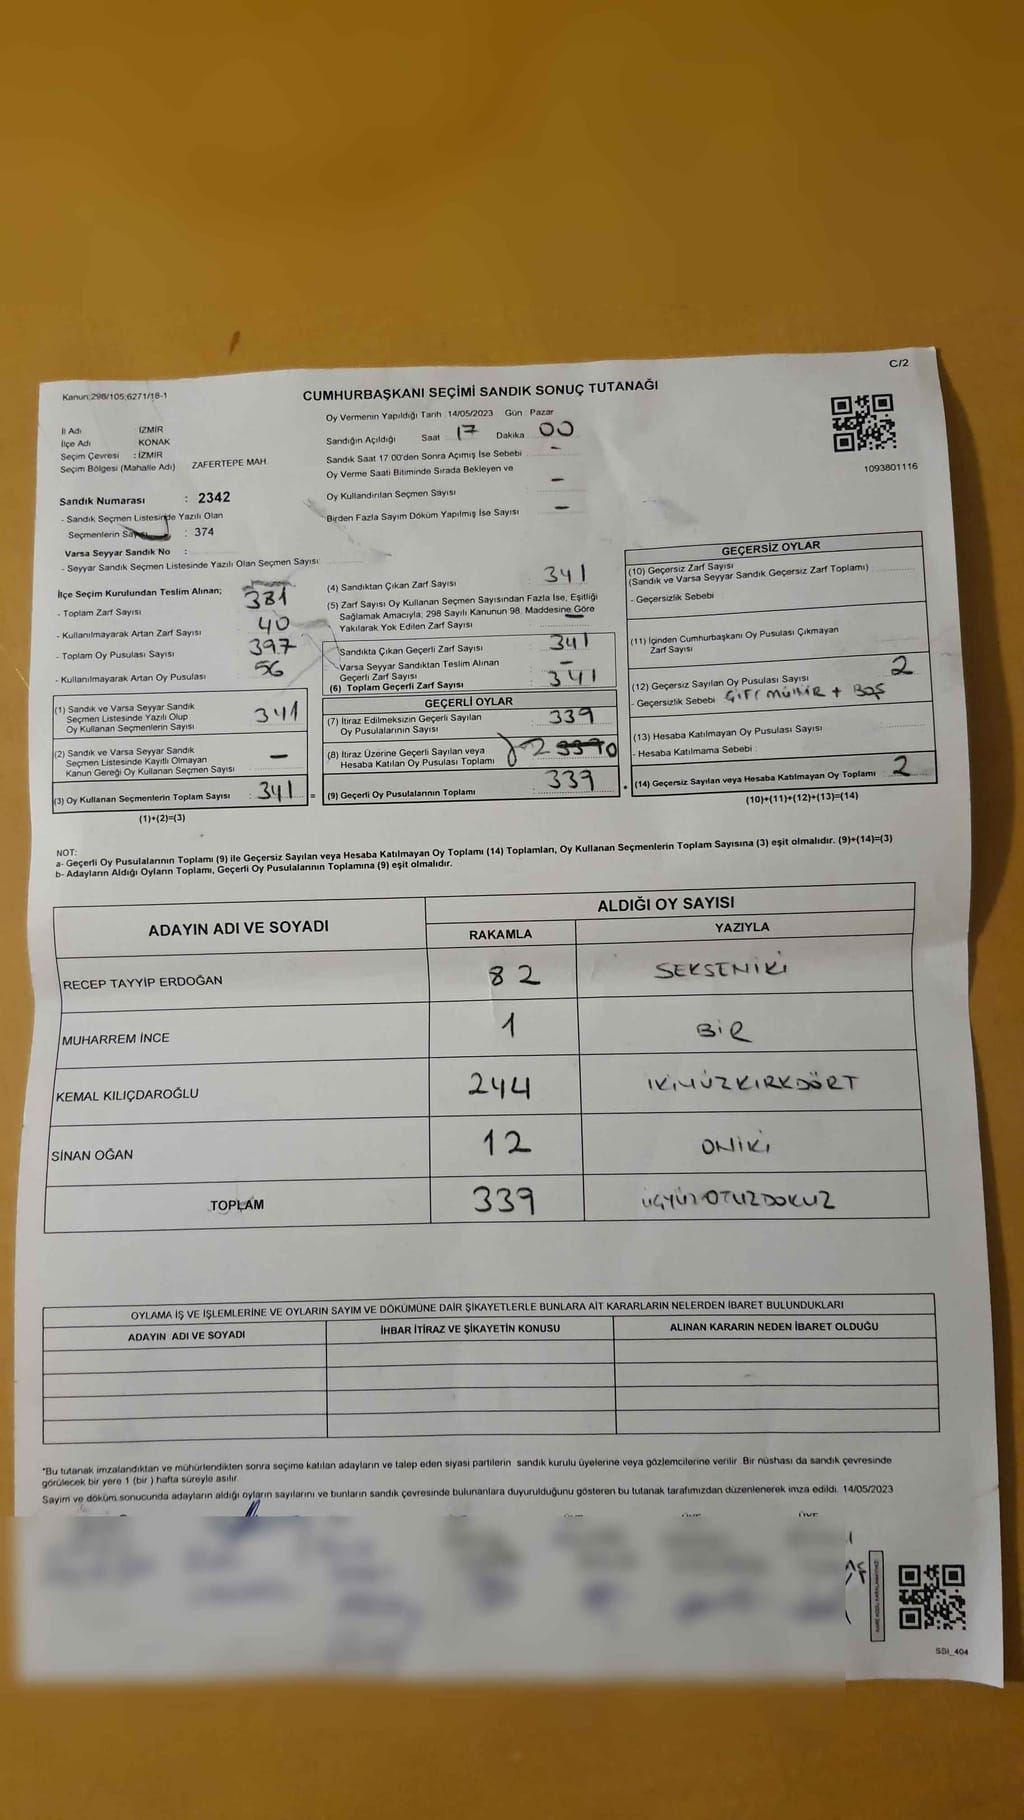 C/2
Kanun;298/105;6271/18-1
CUMHURBAŞKANI SEÇİMİ SANDIK SONUÇ TUTANAĞI
İl Adı : İZMİR
İlçe Adı KONAK
Seçim Çevresi : İZMİR
Seçim Bölgesi (Mahalle Adı) ZAFERTEPE MAH.
Sandık Numarası : 2342
- Sandık Seçmen Listesinde Yazılı Olan
Seçmenlerin : 374
Varsa Seyyar Sandık No :
- Seyyar Sandık Seçmen Listesinde Yazılı Olan Seçmen Sayısı:
Oy Vermenin Yapıldığı Tarih : 14/05/2023 Gün : Pazar
Sandığın Açıldığı Saat 17 Dakika 00
Sandık Saat 17:00'den Sonra Açımış İse Sebebi -
Oy Verme Saati Bitiminde Sırada Bekleyen ve
Oy Kullandırılan Seçmen Sayısı -
Birden Fazla Sayım Döküm Yapılmış İse Sayısı -
1093801116
İlçe Seçim Kurulundan Teslim Alınan;
- Toplam Zarf Sayısı 381
- Kullanılmayarak Artan Zarf Sayısı 40
- Toplam Oy Pusulası Sayısı 397
- Kullanılmayarak Artan Oy Pusulası 56
(1) Sandık ve Varsa Seyyar Sandık
Seçmen Listesinde Yazılı Olup
Oy Kullanan Seçmenlerin Sayısı 341
(2) Sandık ve Varsa Seyyar Sandık
Seçmen Listesinde Kayıtlı Olmayan
Kanun Gereği Oy Kullanan Seçmen Sayısı : -
(3) Oy Kullanan Seçmenlerin Toplam Sayısı : 341 =
(1)+(2)=(3)
(4) Sandıktan Çıkan Zarf Sayısı 341
(5) Zarf Sayısı Oy Kullanan Seçmen Sayısından Fazla İse, Eşitliği
Sağlamak Amacıyla, 298 Sayılı Kanunun 98. Maddesine Göre
Yakılarak Yok Edilen Zarf Sayısı -
Sandıkta Çıkan Geçerli Zarf Sayısı 341
Varsa Seyyar Sandıktan Teslim Alınan
Geçerli Zarf Sayısı -
(6) Toplam Geçerli Zarf Sayısı 341
GEÇERLİ OYLAR
(7) İtiraz Edilmeksizin Geçerli Sayılan
Oy Pusulalarının Sayısı 339
(8) İtiraz Üzerine Geçerli Sayılan veya
Hesaba Katılan Oy Pusulası Toplamı
(9) Geçerli Oy Pusulalarının Toplamı : 339
GEÇERSİZ OYLAR
(10) Geçersiz Zarf Sayısı
(Sandık ve Varsa Seyyar Sandık Geçersiz Zarf Toplamı)
- Geçersizlik Sebebi :
(11) İçinden Cumhurbaşkanı Oy Pusulası Çıkmayan
Zarf Sayısı
(12) Geçersiz Sayılan Oy Pusulası Sayısı 2
- Geçersizlik Sebebi : ÇİFT MÜHÜR + BOŞ
(13) Hesaba Katılmayan Oy Pusulası Sayısı
- Hesaba Katılmama Sebebi :
(14) Geçersiz Sayılan veya Hesaba Katılmayan Oy Toplamı : 2
(10)+(11)+(12)+(13)=(14)
NOT:
a- Geçerli Oy Pusulalarının Toplamı (9) ile Geçersiz Sayılan veya Hesaba Katılmayan Oy Toplamı (14) Toplamları, Oy Kullanan Seçmenlerin Toplam Sayısına (3) eşit olmalıdır. (9)+(14)=(3)
b- Adayların Aldığı Oyların Toplamı, Geçerli Oy Pusulalarının Toplamına (9) eşit olmalıdır.
ADAYIN ADI VE SOYADI
ALDIĞI OY SAYISI
RAKAMLA YAZIYLA
RECEP TAYYİP ERDOĞAN 82 SEKSENİKİ
MUHARREM İNCE 1 BİR
KEMAL KILIÇDAROĞLU 244 İKİYÜZKIRKDÖRT
SİNAN OĞAN 12 ONİKİ
TOPLAM 339 ÜÇYÜZOTUZDOKUZ
OYLAMA İŞ VE İŞLEMLERİNE VE OYLARIN SAYIM VE DÖKÜMÜNE DAİR ŞİKAYETLERLE BUNLARA AİT KARARLARIN NELERDEN İBARET BULUNDUKLARI
ADAYIN ADI VE SOYADI İHBAR İTİRAZ VE ŞİKAYETİN KONUSU ALINAN KARARIN NEDEN İBARET OLDUĞU
*Bu tutanak imzalandıktan ve mühürlendikten sonra seçime katılan adayların ve talep eden siyasi partilerin sandık kurulu üyelerine veya gözlemcilerine verilir. Bir nüshası da sandık çevresinde
görülecek bir yere 1 (bir ) hafta süreyle asılır.
Sayım ve döküm sonucunda adayların aldığı oyların sayılarını ve bunların sandık çevresinde bulunanlara duyurulduğunu gösteren bu tutanak tarafımızdan düzenlenerek imza edildi. 14/05/2023
SSI_404